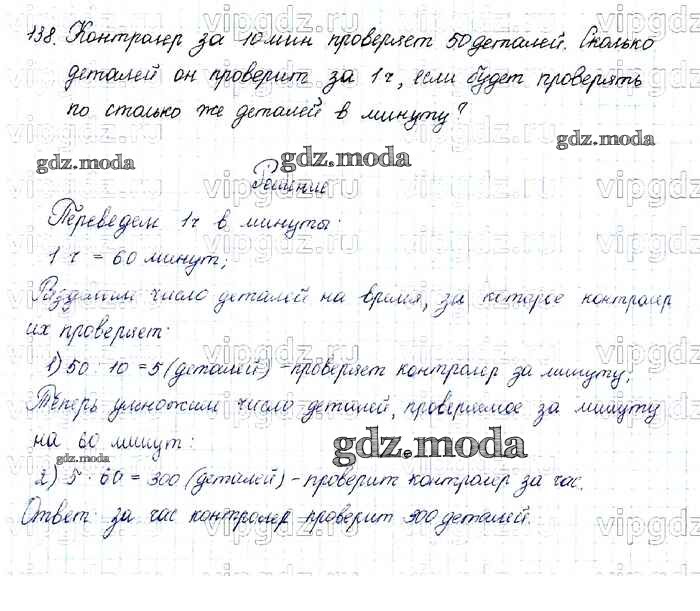 138. Контролер за 10 мин проверяет 50 деталей. Сколько
деталей он проверит за 1 ч, если будет проверять
по столько же деталей в минуту?
gdz.moda gdz.moda gdz.moda
Решение
Переведем 1 ч в минуты:
1 ч = 60 минут;
Разделим число деталей на время, за которое контролер
их проверяет:
1) 50 : 10 = 5 (деталей) - проверяет контролер за минуту;
Теперь умножим число деталей, проверяемое за минуту
на 60 минут:
gdz.moda
gdz.moda
2) 5 · 60 = 300 (деталей) - проверит контролер за час.
Ответ: за час контролер проверит 300 деталей.
vipgdz.ru